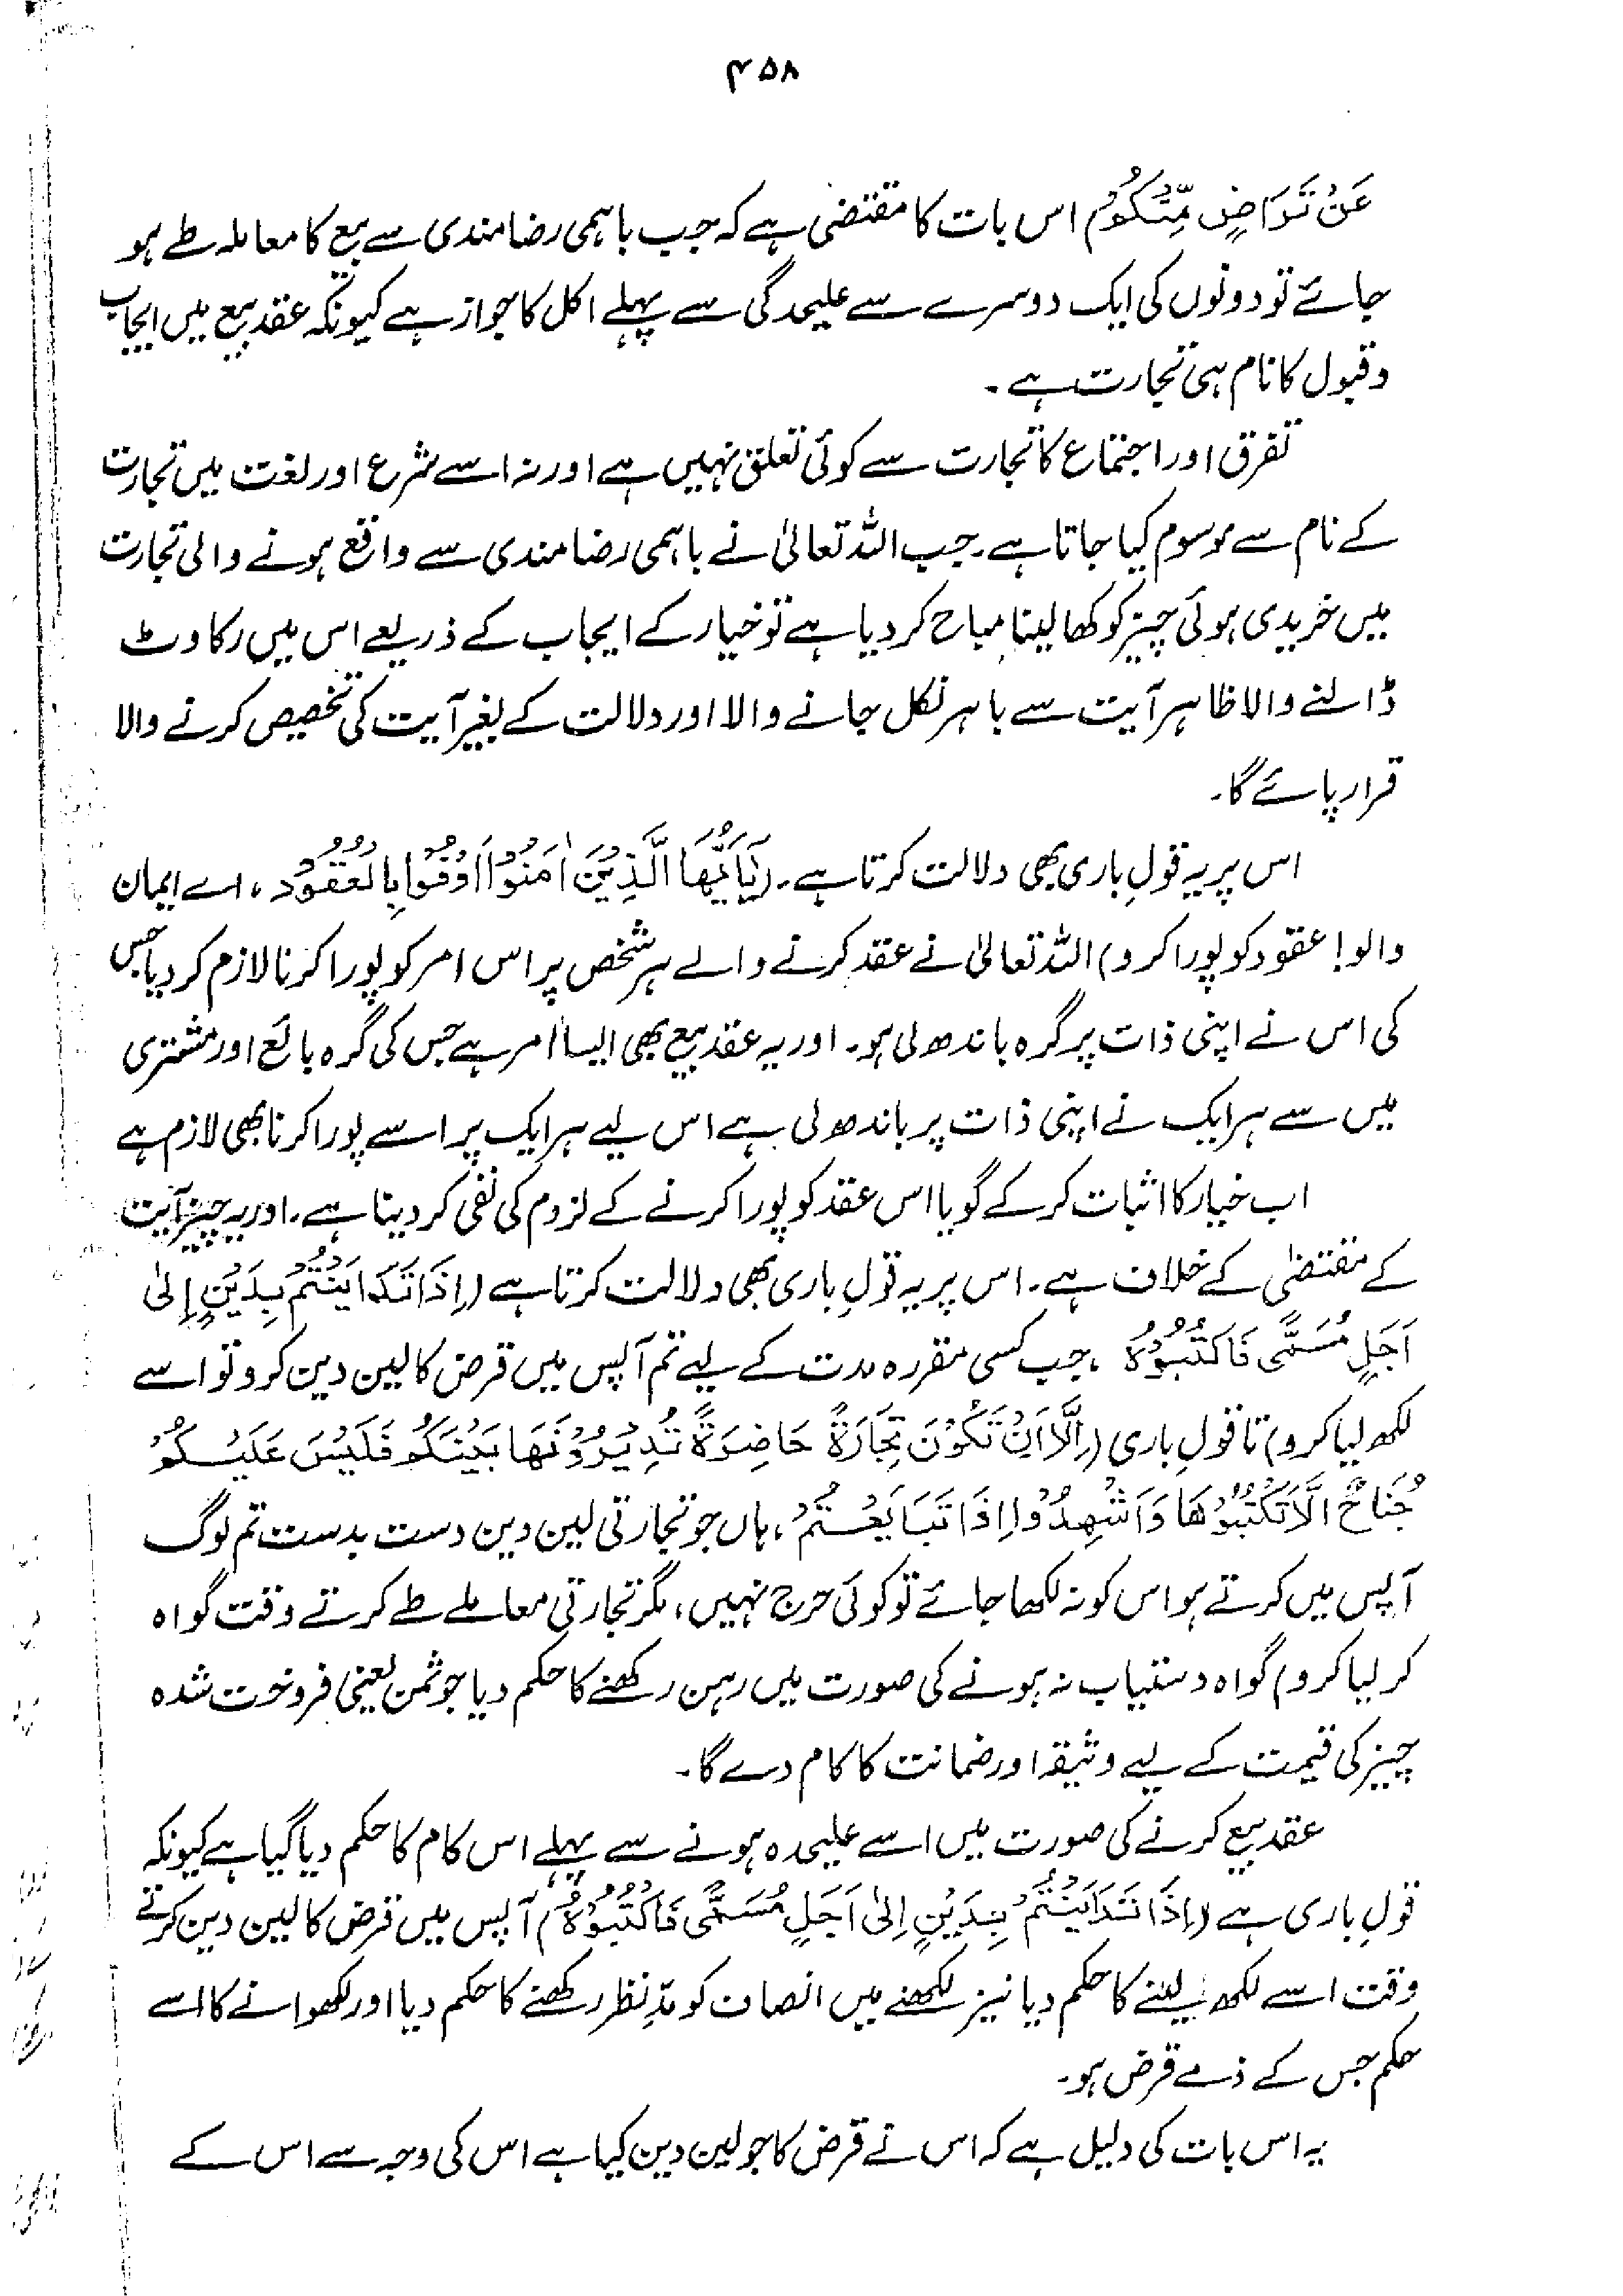 ۴۵۸
عَنْ تَرَاضٍ مِّنْكُمْ اس بات کا مقتضی ہے کہ جب باہمی رضامندی سے بیع کا معاملہ طے ہو
جائے تو دونوں کی ایک دوسرے سے علیحدگی سے پہلے اکل کا جواز ہے کیونکہ عقد بیع میں ایجاب
وقبول کا نام ہی تجارت ہے۔
تفرق اور اجتماع کا تجارت سے کوئی تعلق نہیں ہے اور نہ اسے شرع اور لغت میں تجارت
کے نام سے موسوم کیا جاتا ہے۔ جب اللہ تعالیٰ نے باہمی رضامندی سے واقع ہونے والی تجارت
میں خریدی ہوئی چیز کو کھا لینا مباح کر دیا ہے تو خیار کے ایجاب کے ذریعے اس میں رکاوٹ
ڈالنے والا ظاہر آیت سے باہر نکل جانے والا اور دلالت کے بغیر آیت کی تخصیص کرنے والا
قرار پائے گا۔
اس پر یہ قولِ باری بھی دلالت کرتا ہے۔ (يٰۤاَيُّهَا الَّذِيْنَ اٰمَنُوْۤا اَوْفُوْا بِالْعُقُوْدِ، اے ایمان
والو! عقود کو پورا کرو) اللہ تعالیٰ نے عقد کرنے والے ہر شخص پر اس امر کو پورا کرنا لازم کر دیا جس
کی اس نے اپنی ذات پر گرہ باندھ لی ہو۔ اور یہ عقد بیع بھی ایسا امر ہے جس کی گرہ بائع اور مشتری
میں سے ہر ایک نے اپنی ذات پر باندھ لی ہے اس لیے ہر ایک پر اسے پورا کرنا بھی لازم ہے
اب خیار کا اثبات کر کے گویا اس عقد کو پورا کرنے کے لزوم کی نفی کر دینا ہے۔ اور یہ چیز آیت
کے مقتضیٰ کے خلاف ہے۔ اس پر یہ قولِ باری بھی دلالت کرتا ہے (اِذَا تَدَايَنْتُمْ بِدَيْنٍ اِلٰى
اَجَلٍ مُّسَمًّى فَاكْتُبُوْهُ، جب کسی مقررہ مدت کے لیے تم آپس میں قرض کا لین دین کرو تو اسے
لکھ لیا کرو) تا قولِ باری (اِلَّاۤ اَنْ تَكُوْنَ تِجَارَةً حَاضِرَةً تُدِيْرُوْنَهَا بَيْنَكُمْ فَلَيْسَ عَلَيْكُمْ
جُنَاحٌ اَلَّا تَكْتُبُوْهَا وَاَشْهِدُوْۤا اِذَا تَبَايَعْتُمْ، ہاں جو تجارتی لین دین دست بدست تم لوگ
آپس میں کرتے ہو اس کو نہ لکھا جائے تو کوئی حرج نہیں، مگر تجارتی معاملے طے کرتے وقت گواہ
کر لیا کرو) گواہ دستیاب نہ ہونے کی صورت میں رہن رکھنے کا حکم دیا جو ثمن یعنی فروخت شدہ
چیز کی قیمت کے لیے وثیقہ اور ضمانت کا کام دے گا۔
عقد بیع کرنے کی صورت میں اسے علیحدہ ہونے سے پہلے اس کام کا حکم دیا گیا ہے کیونکہ
قولِ باری ہے (اِذَا تَدَايَنْتُمْ بِدَيْنٍ اِلٰى اَجَلٍ مُّسَمًّى فَاكْتُبُوْهُ) آپس میں قرض کا لین دین کرتے
وقت اسے لکھ لینے کا حکم دیا نیز لکھنے میں انصاف کو مدِّنظر رکھنے کا حکم دیا اور لکھوانے کا اسے
حکم جس کے ذمے قرض ہو۔
یہ اس بات کی دلیل ہے کہ اس نے قرض کا جو لین دین کیا ہے اس کی وجہ سے اس کے